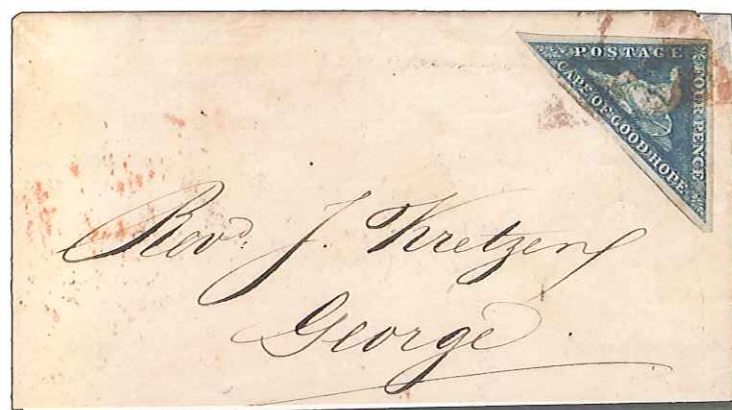 POSTAGE
FOUR PENCE
CAPE OF GOOD HOPE
Revd. J. Kretzen
George.